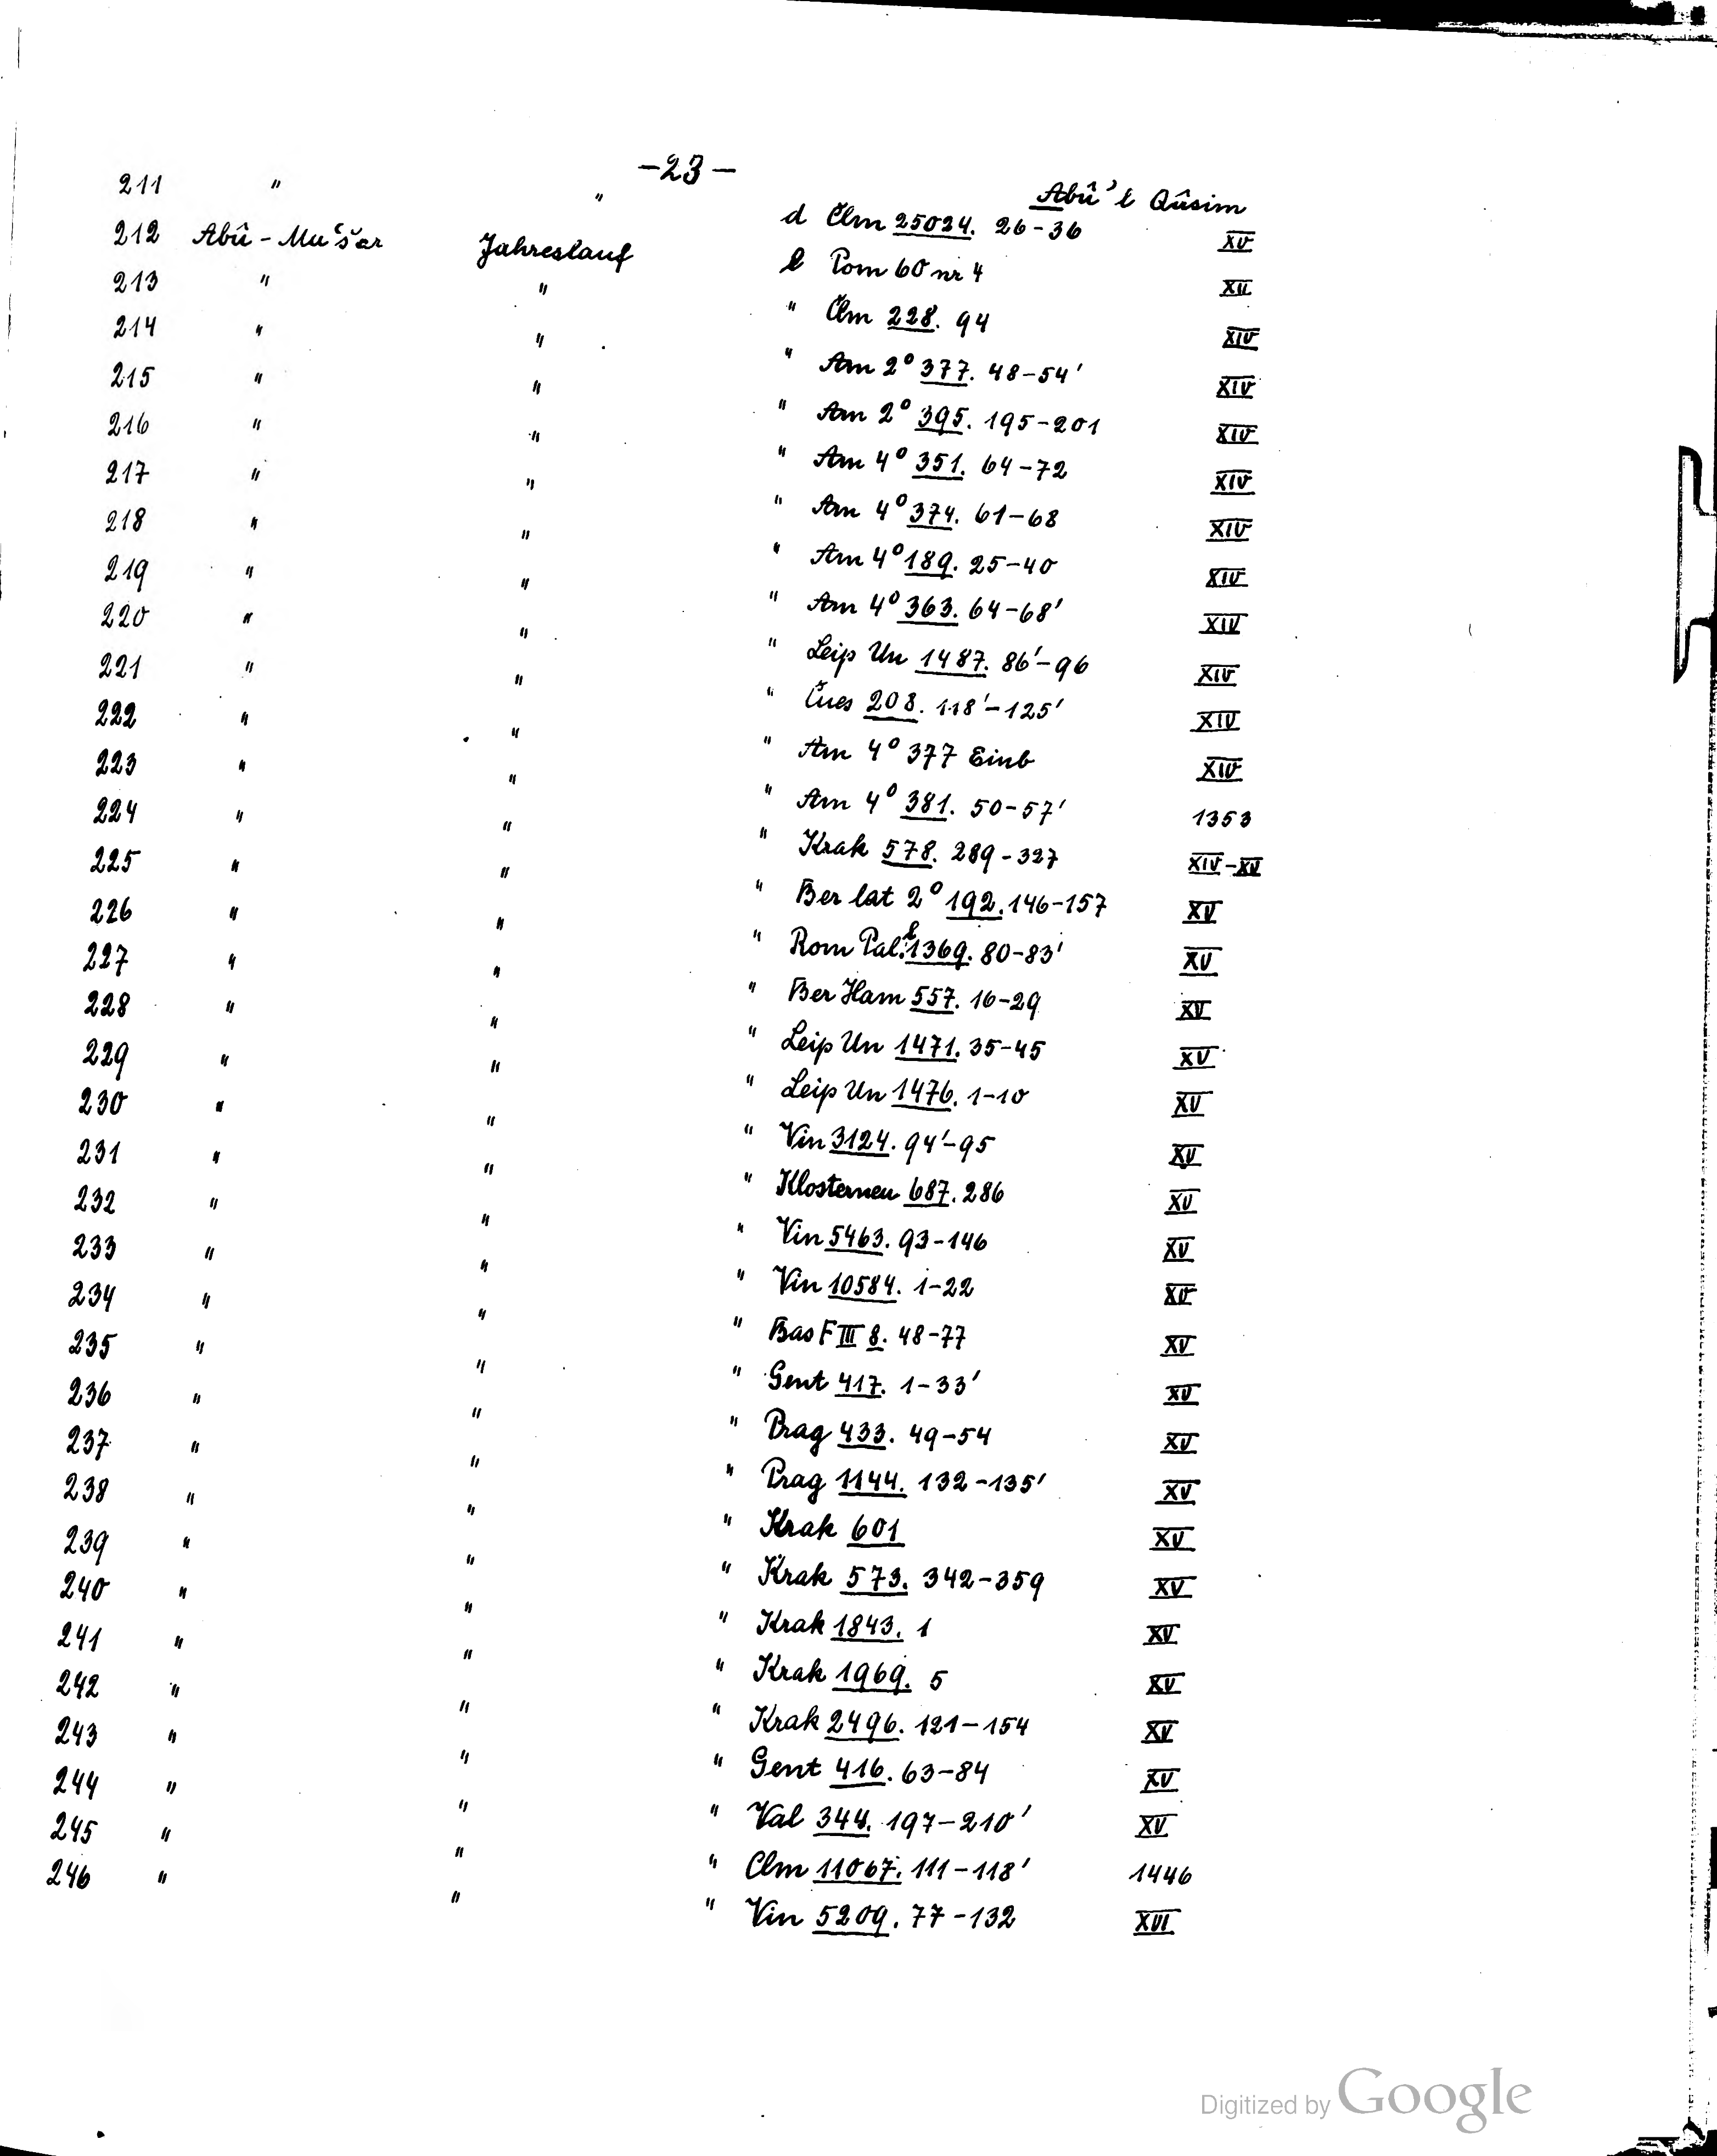 -23-
Abû'l Qâsim
211 " " d Clm 25024. 26-36 XV
212 Abû-Ma'šar Jahreslauf l Pom 60 nr 4 XII
213 " " " Clm 228. 94 XIV
214 " " " Am 2° 377. 48-54' XIV
215 " " " Am 2° 395. 195-201 XIV
216 " " " Am 4° 351. 64-72 XIV
217 " " " Am 4° 374. 61-68 XIV
218 " " " Am 4° 189. 25-40 XIV
219 " " " Am 4° 363. 64-68' XIV
220 " " " Leip Un 1487. 86'-96 XIV
221 " " " Cues 208. 118'-125' XIV
222 " " " Am 4° 377 Einb XIV
223 " " " Am 4° 381. 50-57' 1353
224 " " " Krak 578. 289-327 XIV-XV
225 " " " Ber lat 2° 192. 146-157 XV
226 " " " Rom Pal. l 1369. 80-83' XV
227 " " " Ber Ham 557. 16-29 XV
228 " " " Leip Un 1471. 35-45 XV
229 " " " Leip Un 1476. 1-10 XV
230 " " " Vin 3124. 94'-95 XV
231 " " " Klosterneu 687. 286 XV
232 " " " Vin 5463. 93-146 XV
233 " " " Vin 10584. 1-22 XV
234 " " " Bas F III 8. 48-77 XV
235 " " " Gent 417. 1-33' XV
236 " " " Prag 433. 49-54 XV
237 " " " Prag 1144. 132-135' XV
238 " " " Krak 601 XV
239 " " " Krak 573. 342-359 XV
240 " " " Krak 1843. 1 XV
241 " " " Krak 1969. 5 XV
242 " " " Krak 2496. 121-154 XV
243 " " " Gent 416. 63-84 XV
244 " " " Val 344. 197-210' XV
245 " " " Clm 11067. 111-118' 1446
246 " " " Vin 5209. 77-132 XVI
Digitized by Google